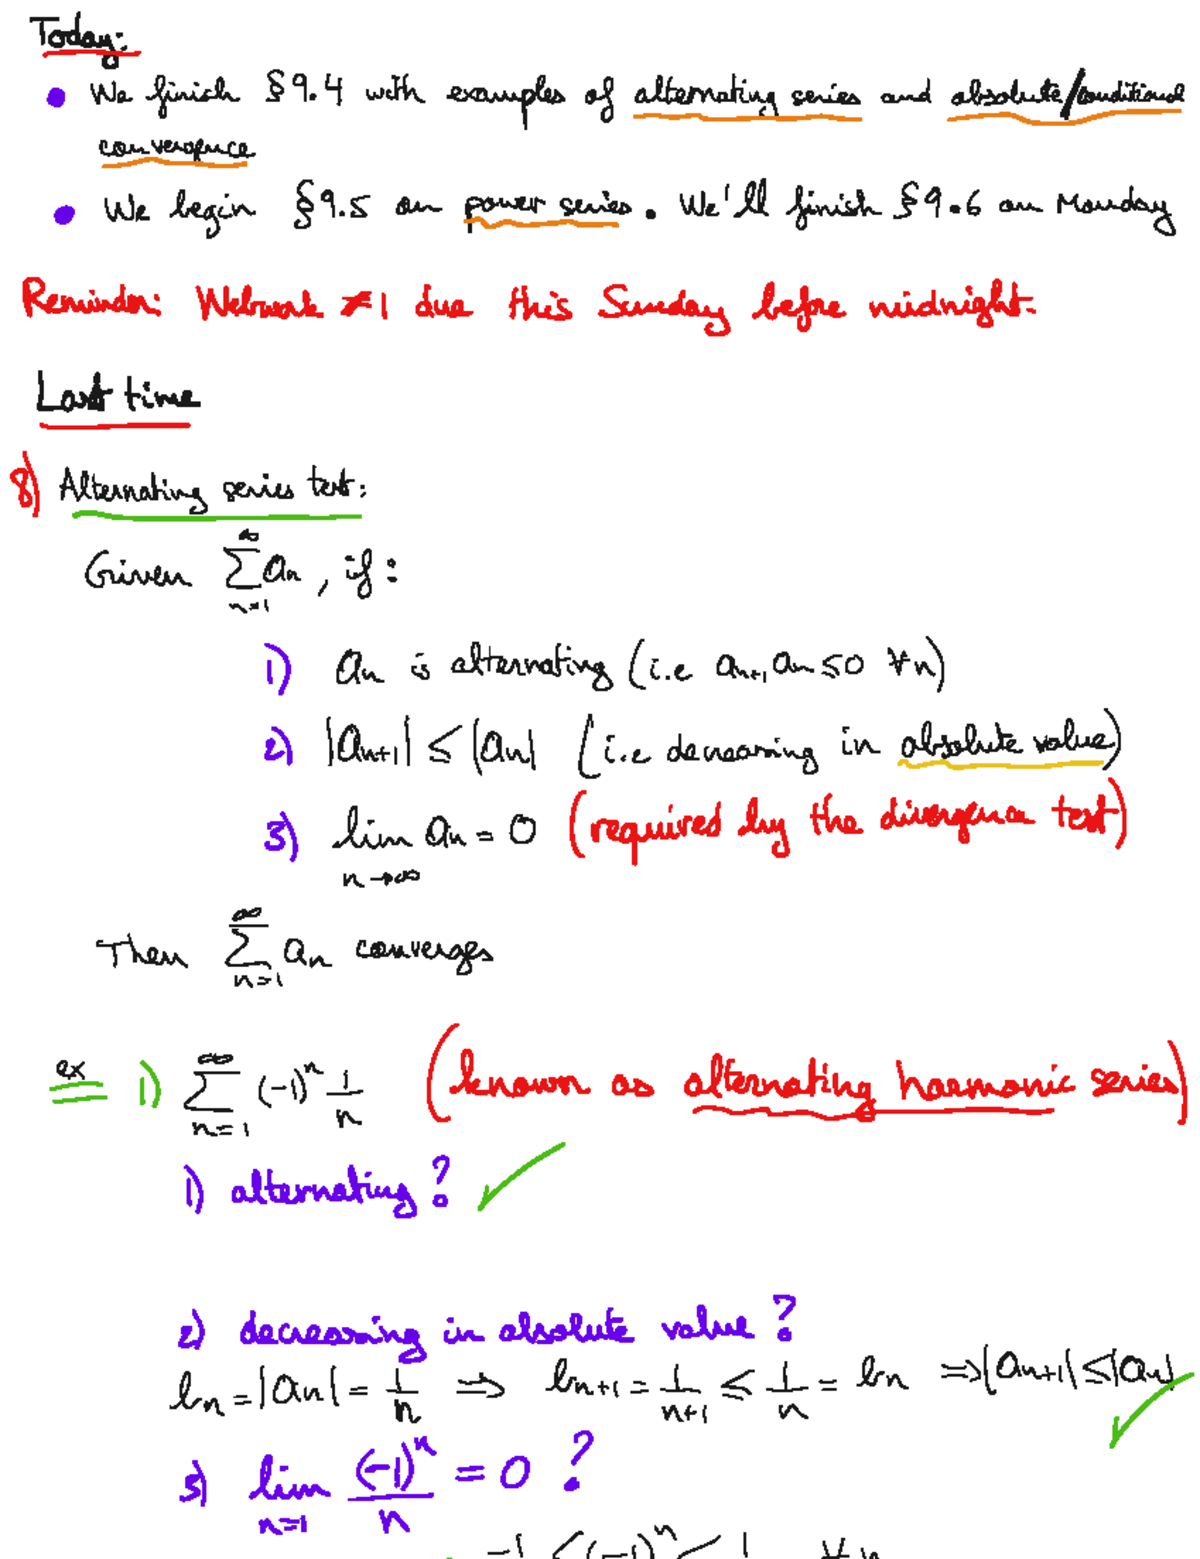 Today:
• We finish §9.4 with examples of alternating series and absolute/conditional
convergence
• We begin §9.5 on power series. We'll finish §9.6 on Monday
Reminder: Webwork #1 due this Sunday before midnight.
Last time
8) Alternating series test:
Given ∑_{n=1}^{∞} aₙ, if:
1) aₙ is alternating (i.e aₙ₊₁ aₙ ≤ 0 ∀n)
2) |aₙ₊₁| ≤ |aₙ| (i.e decreasing in absolute value)
3) lim_{n→∞} aₙ = 0 (required by the divergence test)
Then ∑_{n=1}^{∞} aₙ converges
ex 1) ∑_{n=1}^{∞} (-1)ⁿ 1/n (known as alternating harmonic series)
1) alternating? ✓
2) decreasing in absolute value?
bₙ = |aₙ| = 1/n ⇒ bₙ₊₁ = 1/(n+1) ≤ 1/n = bₙ ⇒ |aₙ₊₁| ≤ |aₙ| ✓
3) lim_{n=1} (-1)ⁿ/n = 0 ?
-1 ≤ (-1)ⁿ ≤ 1 ∀n